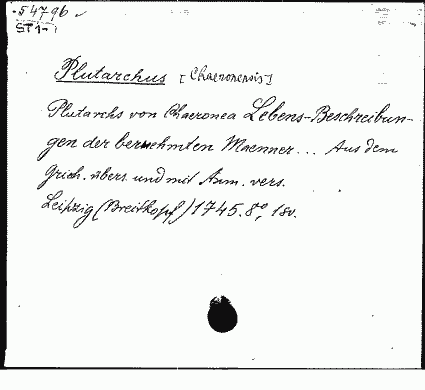 54796
ST 1-
Plutarchus [Chaeronensis]
Plutarchs von Chaeronea Lebens-Beschreibun-
gen der beruehmten Maenner... Aus dem
Griech. übers. und mit Anm. vers.
Leipzig (Breitkopf) 1745. 8°, 1 Bv.